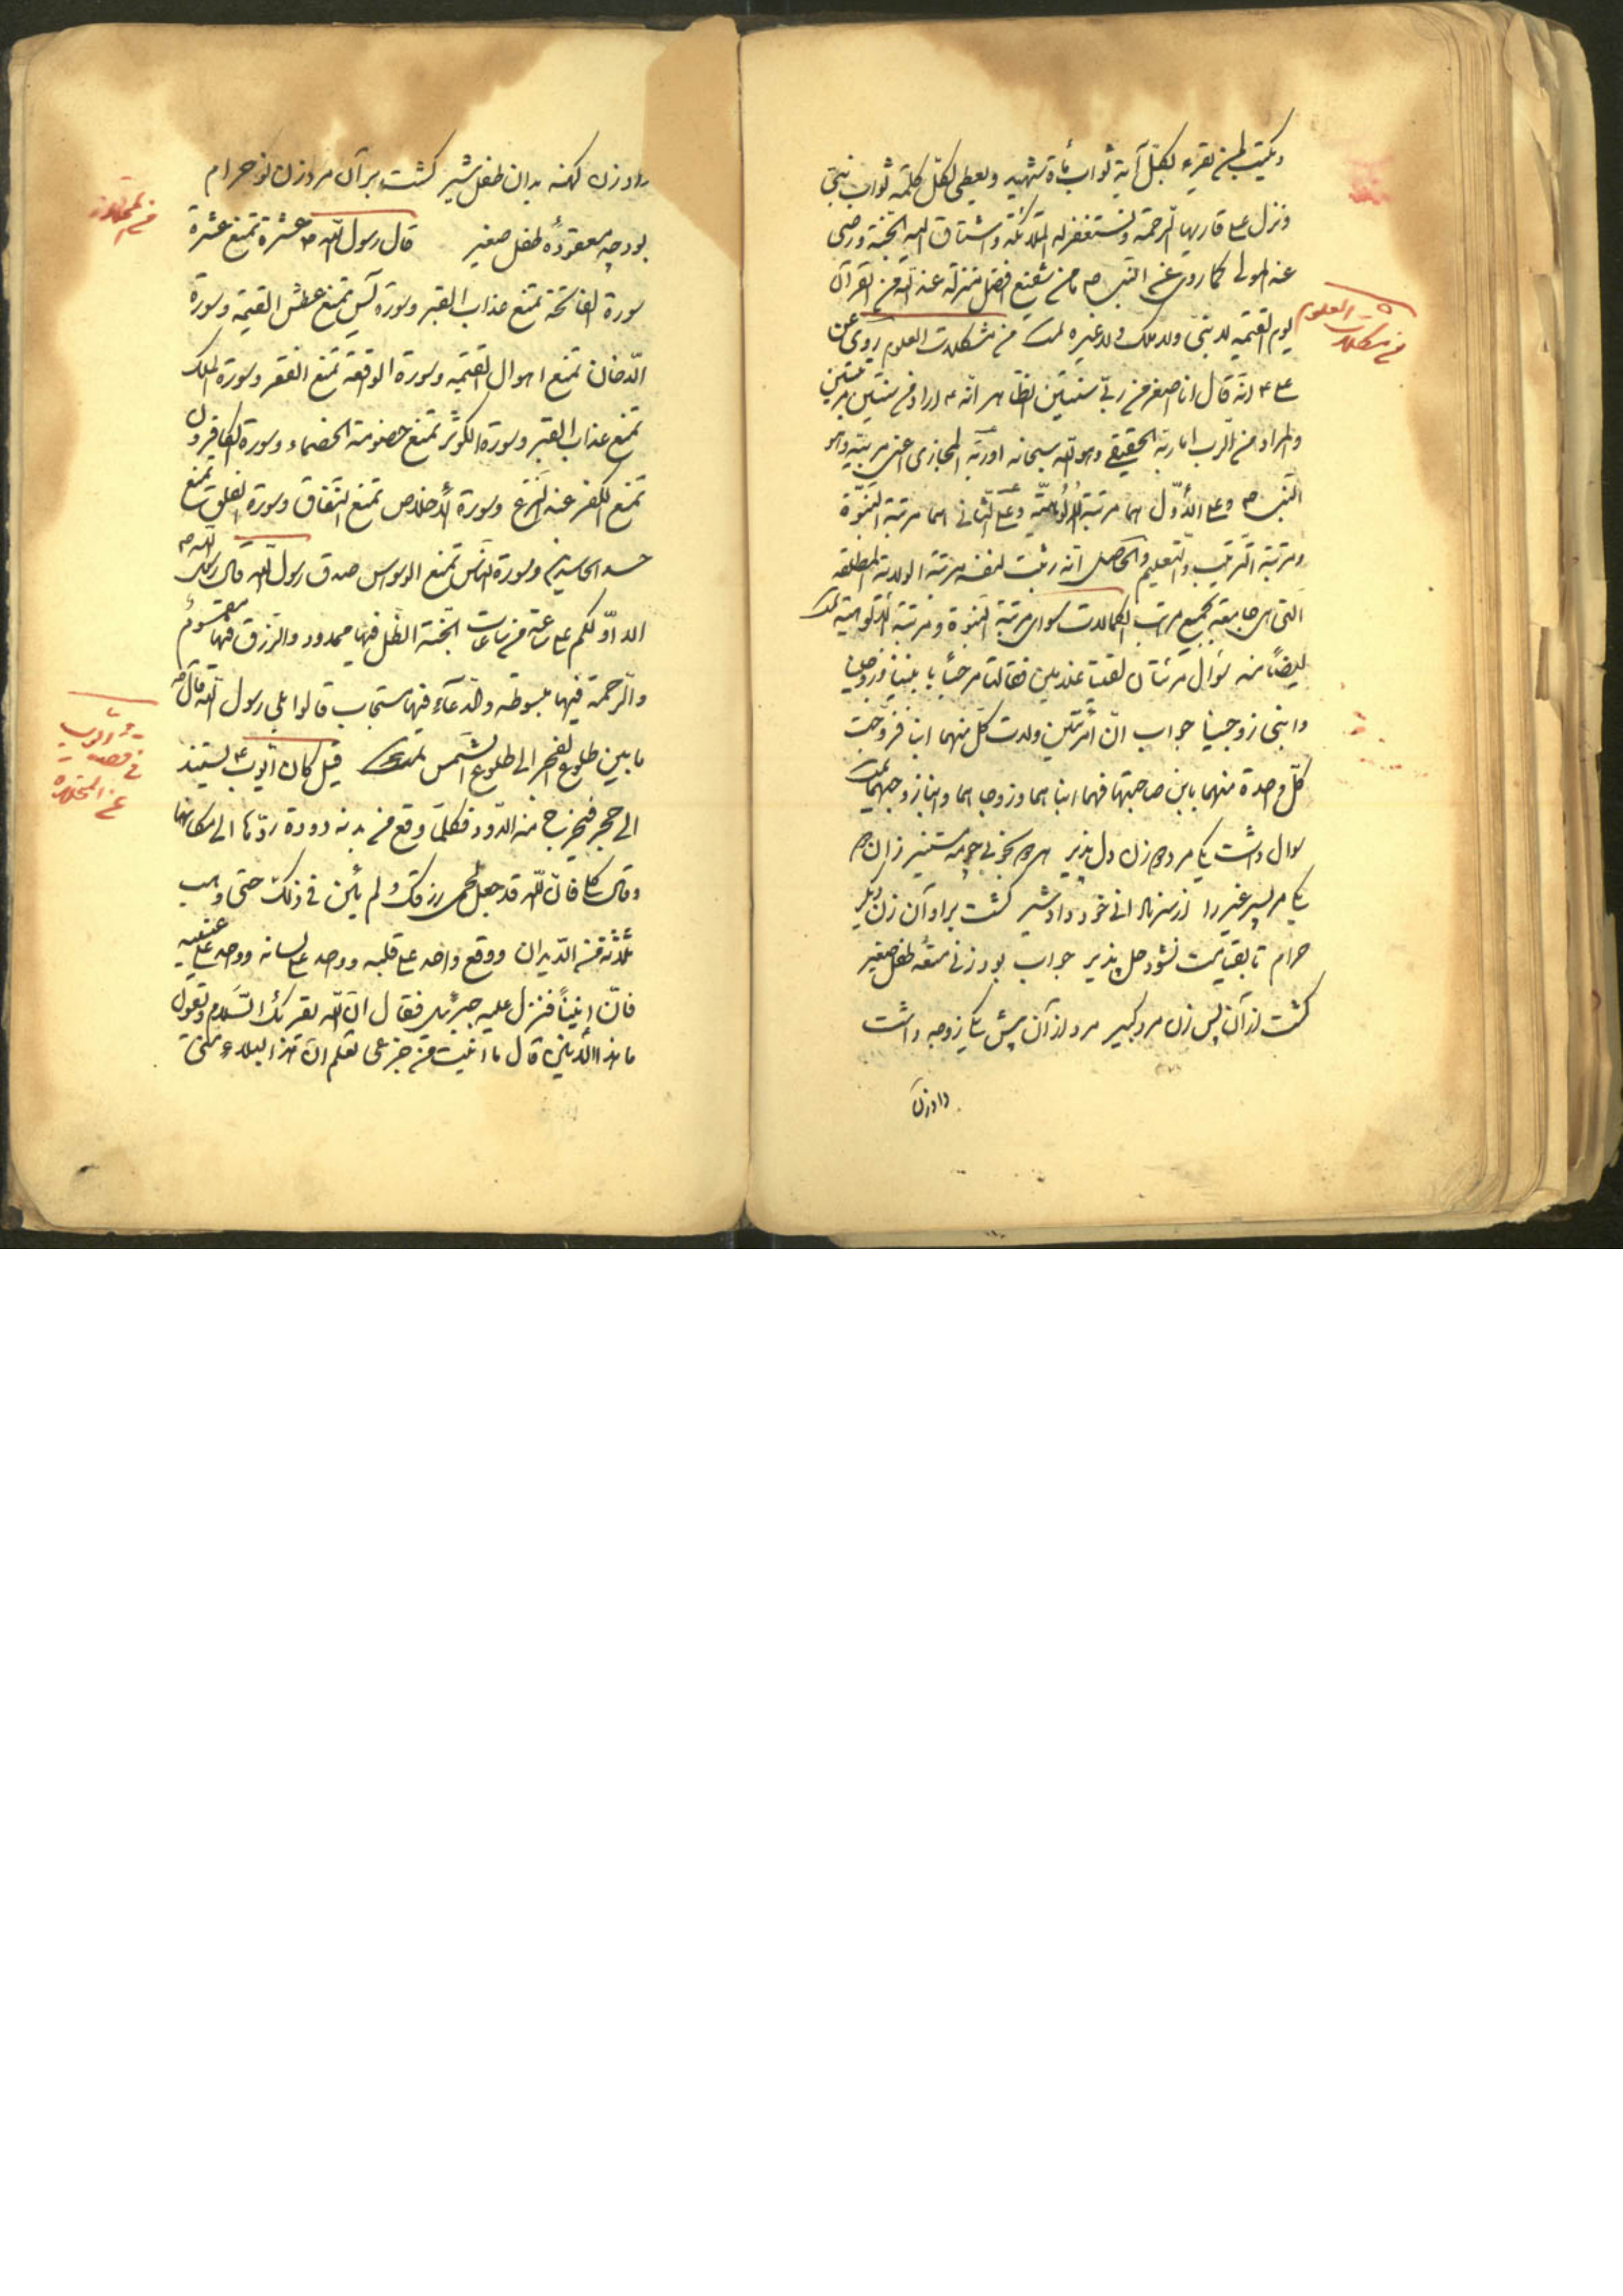 ویکتب لمن یقرء بکلّ آیة ثواب مأة شهید ویعطی لکلّ کلمة ثواب نبیّ
ونزل علی قاریها الرحمة ویستغفر له الملائکة واشتاق الیه الجنّة ورضی
عنه المولی کما روی عن النبی ص ما من شفیع افضل منزلة عند الله من القرآن
یوم القیمه لا نبیّ ولا ملک ولا غیره تمت من مشکلات العلوم روی عن
علی ع انّه قال انا اصغر من ربّی سنتین الظاهر انّه ع اراد من سنتین مرتبتین
والمراد من الرب اما ربّه الحقیقی وهو الله سبحانه او ربّه المجازی اعنی مربّیه وهو
النبی ص وعلی الأوّل هما مرتبة الألوهیّة وعلی الثانی هما مرتبة النبوّة
ومرتبة التربیة والتعلیم والحاصل انّه اثبت لنفسه مرتبة الولایة المطلقه
الّتی هی جامعة لجمیع مراتب الکمالات سوای مرتبة النبوّة ومرتبة الألوهیة تمت
ایضاً منه سؤال مرئتان لقیتا غلامین فقالتا مرحباً بابنینا وزوجینا
وابنی زوجینا جواب انّ امرئتین ولدت کلّ منهما ابنا فزوّجت
کلّ واحدة منهما بابن صاحبتها فهما ابناهما وزوجاهما وابنا زوجیهما تمت
سوال داشت یک مرد دو زن دل پذیر هر دو بخوبی چو مه مستنیر زان دو
یکی مر پسر غیر را از سر نادانی خود داد شیر گشت بر او آن زن دیگر
حرام تا بقیامت نشود حل پذیر جواب بود زنی متعهٔ طفل صغیر
گشت از آن پس زن مرد کبیر مرد از آن پیش یکی زوجه داشت
داد زن
فی مشکلات العلوم
داد زن کهنه بدان طفل شیر گشت بر آن مرد زن نو حرام
بود چه معقودهٔ طفل صغیر قال رسول الله ص عشرة تمنع عشرة
سورة الفاتحة تمنع عذاب القبر وسورة یس تمنع عطش القیمة وسورة
الدّخان تمنع اهوال القیمه وسورة الواقعة تمنع الفقر وسورة الملک
تمنع عذاب القبر وسورة الکوثر تمنع خصومة الخصماء وسورة الکافرون
تمنع الکفر عند النزع وسورة الأخلاص تمنع النفاق وسورة الفلق تمنع
حسد الحاسدین وسورة النّاس تمنع الوسواس صدق رسول الله قال رسول الله ص
الا ادّلکم علی ساعة من ساعات الجنّة الظل فیها ممدود والرزق فیها مقسوم
والرحمة فیها مبسوطه والدّعاء فیها مستجاب قالوا بلی رسول الله قال ص
ما بین طلوع الفجر الی طلوع الشّمس تمت قیل کان ایّوب ع یستند
الی حجر فیخرج منه الدّود فکلمّا وقع من بدنه دودة ردّها الی مکانها
وقال کلی فانّ الله قد جعل لحمی رزقک ولم یأنّ فی ذلک حتی ذهب
ثلاثة من الدّیدان ووقع واحد علی قلبه وواحد علی لسانه وواحد علی عینیه
فأنّ انیناً فنزل علیه جبرئیل فقال انّ الله یقرئک السّلام ویقول
ما هذا الأنین قال ما انیت من جزعی تعلم انّ هذا البلاء